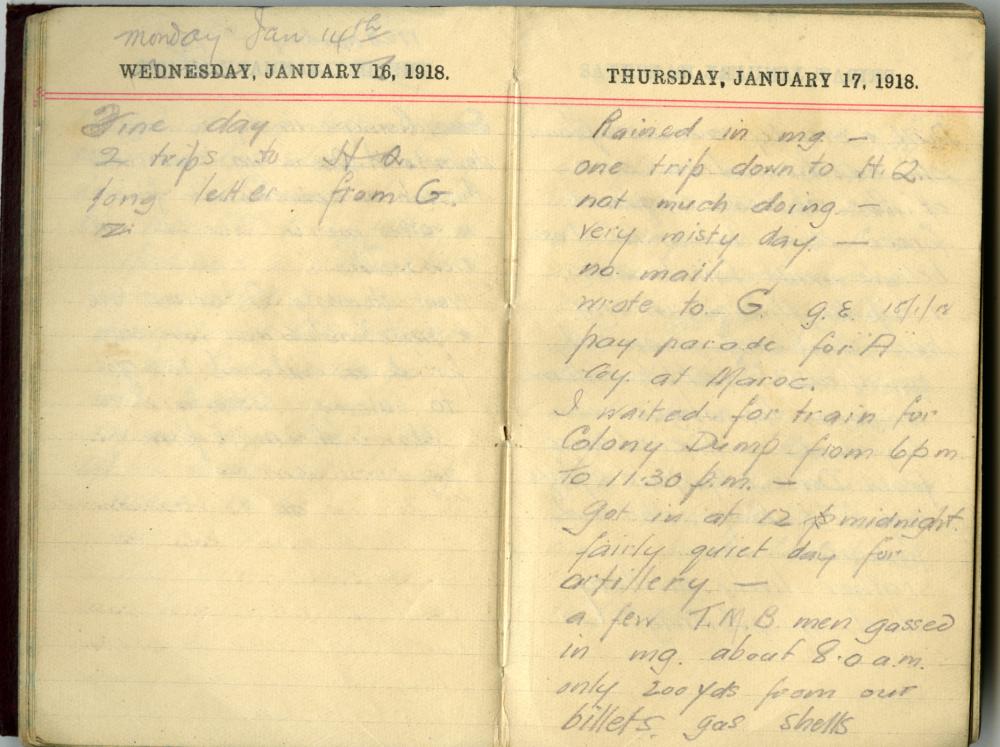 monday Jan 14th
WEDNESDAY, JANUARY 16, 1918.
Fine day
2 trips to H.Q.
long letter from G.
THURSDAY, JANUARY 17, 1918.
Rained in mg. —
one trip down to H.Q.
not much doing —
very misty day. —
no mail.
wrote to G. g.E.
pay parade for A
Coy. at Maroc.
I waited for train for
Colony Dump from 6 p.m.
to 11.30 p.m. —
Got in at 12 midnight.
fairly quiet day for
artillery —
a few T.M.B. men gassed
in mg. about 8.0 a.m.
only 200 yds from our
billets. gas shells